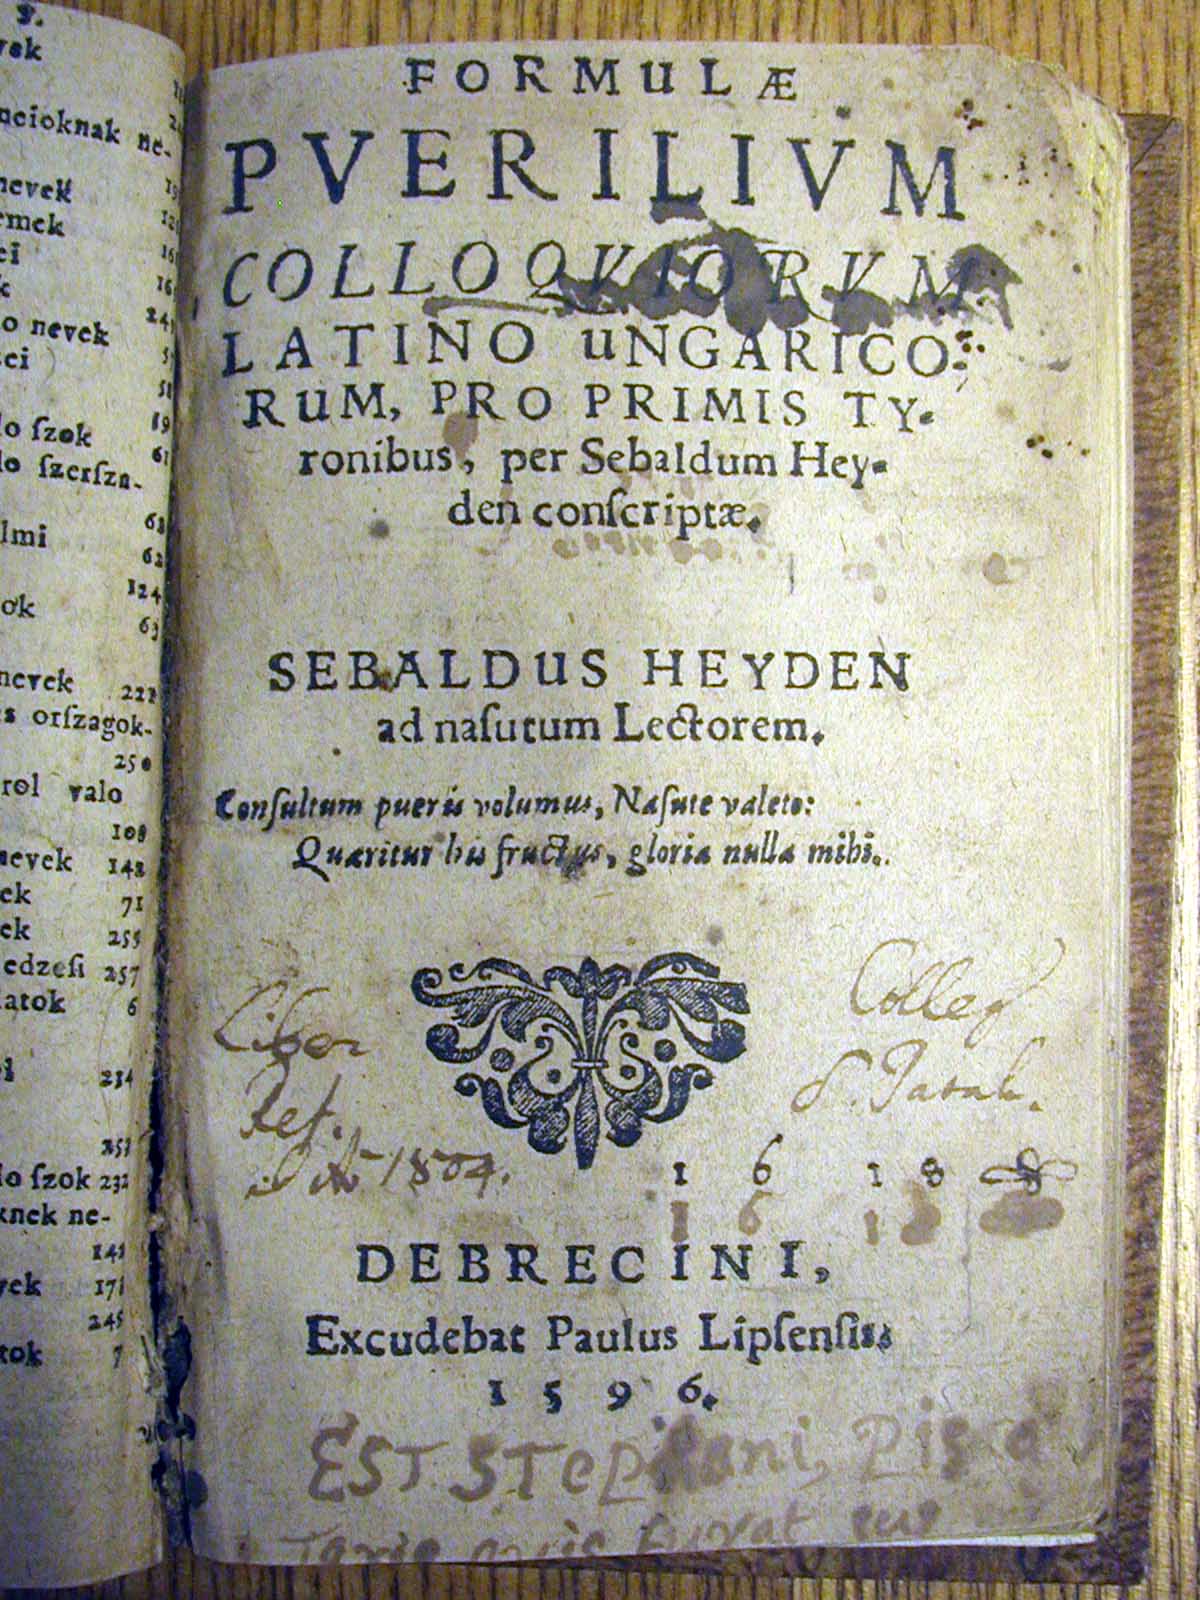 y.
vek
ncioknak ne-
nevek
emek
ei
k
o nevek
ei
lo ſzok
lo ſzerſza-
lmi
ok
nevek 221
s orſzagok-
250
rol valo
108
nevek 142
ek 71
ek 255
edzeſi 257
latok 6
i 234
251
lo ſzok 232
knek ne-
141
vek 171
245
tok 7
FORMULÆ
PVERILIVM
COLLOQVIORVM
LATINO UNGARICO-
RUM, PRO PRIMIS TY-
ronibus, per Sebaldum Hey-
den conſcriptæ.
SEBALDUS HEYDEN
ad naſutum Lectorem.
Conſultum pueris volumus, Naſute valeto:
Quæritur his fructus, gloria nulla mihi.
Liber Colleg
Ref. S. Patak.
1804.
1618
DEBRECINI,
Excudebat Paulus Lipſenſis.
1596.
EST STEPhani, Pis